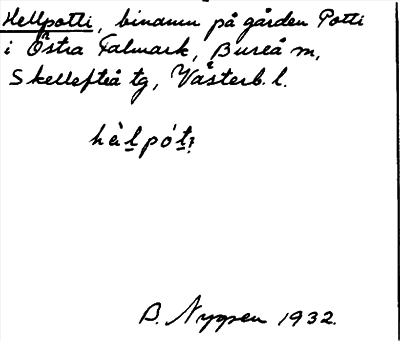 Hellpotti, binamn på gården Potti
i Östra Falmark, Bureå sn,
Skellefteå tg, Västerb. l.
B. Nygren 1932.